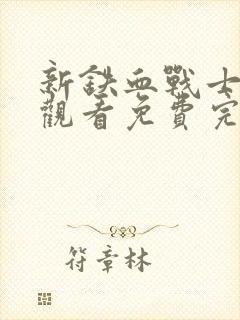 新鉄血戰士
觀看免費完
符章林